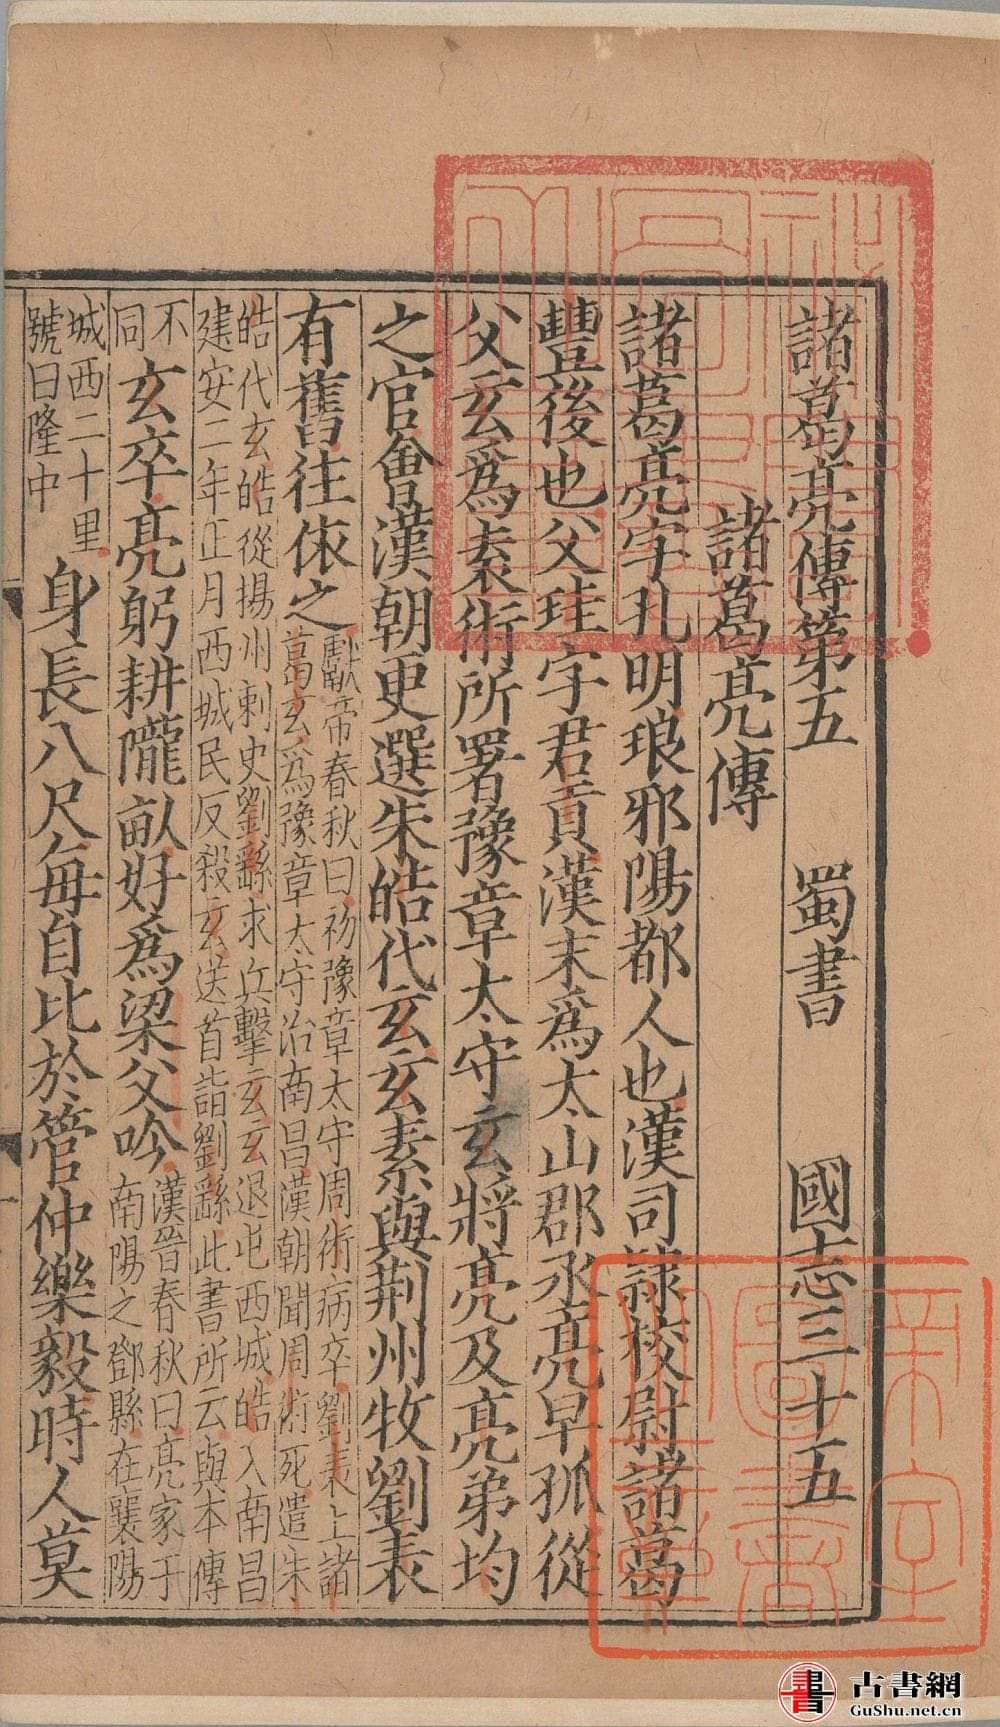 諸葛亮傳第五　蜀書　國志三十五
諸葛亮傳
諸葛亮字孔明琅邪陽都人也漢司隷校尉諸葛
豐後也父珪字君貢漢末爲太山郡丞亮早孤從
父玄爲袁術所署豫章太守玄將亮及亮弟均
之官會漢朝更選朱皓代玄玄素與荆州牧劉表
有舊往依之
獻帝春秋曰初豫章太守周術病卒劉表上諸
葛玄爲豫章太守治南昌漢朝聞周術死遣朱
皓代玄皓從揚州刺史劉繇求兵擊玄玄退屯西城皓入南昌
建安二年正月西城民反殺玄送首詣劉繇此書所云與本傳
不
同
玄卒亮躬耕隴畝好爲梁父吟
漢晉春秋曰亮家于
南陽之鄧縣在襄陽
城西二十里
號曰隆中
身長八尺每自比於管仲樂毅時人莫
古書網
GuShu.net.cn